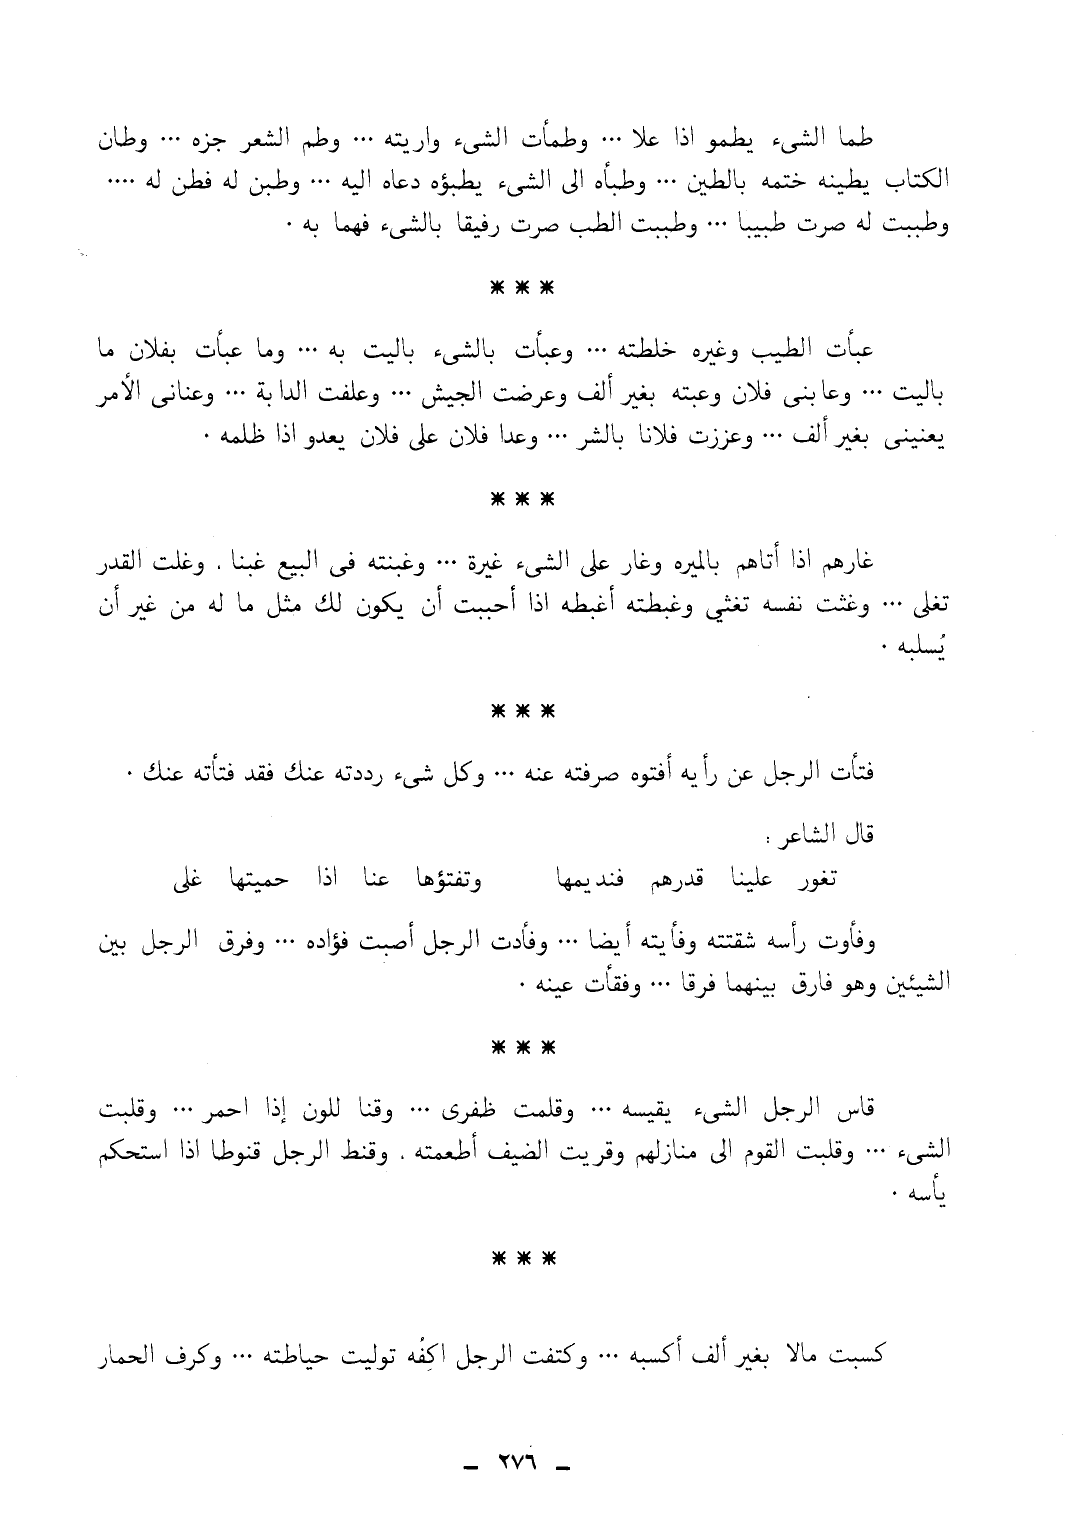 طما الشىء يطمو اذا علا ... وطمأت الشىء واريته ... وطم الشعر جزه ... وطان
الكتاب يطينه ختمه بالطين ... وطبأه الى الشىء يطبؤه دعاه اليه ... وطبن له فطن له ....
وطببت له صرت طبيبا ... وطببت الطب صرت رفيقا بالشىء فهما به .
* * *
عبأت الطيب وغيره خلطته ... وعبأت بالشىء باليت به ... وما عبأت بفلان ما
باليت ... وعابنى فلان وعبته بغير ألف وعرضت الجيش ... وعلفت الدابة ... وعنانى الأمر
يعنينى بغير ألف ... وعززت فلانا بالشر ... وعدا فلان على فلان يعدو اذا ظلمه .
* * *
غارهم اذا أتاهم بالميره وغار على الشىء غيرة ... وغبنته فى البيع غبنا . وغلت القدر
تغلى ... وغثت نفسه تغثي وغبطته أغبطه اذا أحببت أن يكون لك مثل ما له من غير أن
يُسلبه .
* * *
فتأت الرجل عن رأيه أفتوه صرفته عنه ... وكل شىء رددته عنك فقد فتأته عنك .
قال الشاعر :
تغور علينا قدرهم فنديمها وتفتؤها عنا اذا حميتها غلى
وفأوت رأسه شققته وفأيته أيضا ... وفأدت الرجل أصبت فؤاده ... وفرق الرجل بين
الشيئين وهو فارق بينهما فرقا ... وفقأت عينه .
* * *
قاس الرجل الشىء يقيسه ... وقلمت ظفرى ... وقنا للون إذا احمر ... وقلبت
الشىء ... وقلبت القوم الى منازلهم وقريت الضيف أطعمته . وقنط الرجل قنوطا اذا استحكم
يأسه .
* * *
كسبت مالا بغير ألف أكسبه ... وكتفت الرجل اكفُه توليت حياطته ... وكرف الحمار
_ ٢٧٦ _